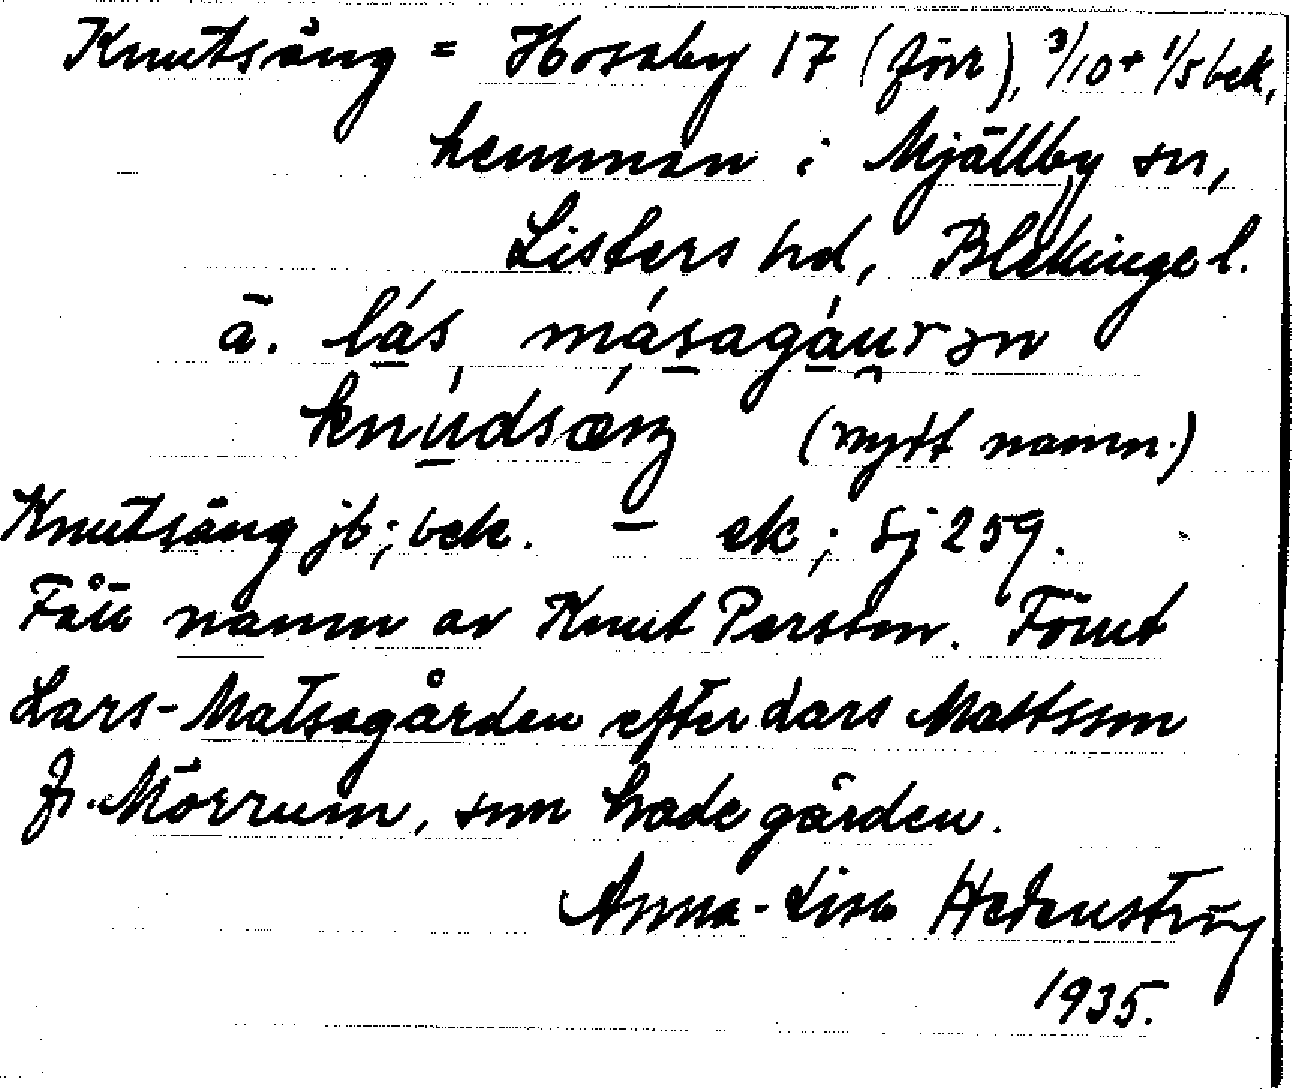 Knutsäng = Hosaby 17 (förr), 3/10 + 1/5 bek.
hemman i Mjällby sn,
Listers hd, Blekinge l.
ā. lás másagáurən
knúdsæŋ (nytt namn.)
Knutsäng jb; bek. – ek; Sj 259.
Fått namn av Knut Persson. Förut
Lars-Matsagården efter Lars Mattsson
fr. Mörrum, som hade gården.
Anna-Lisa Hedenström
1935.